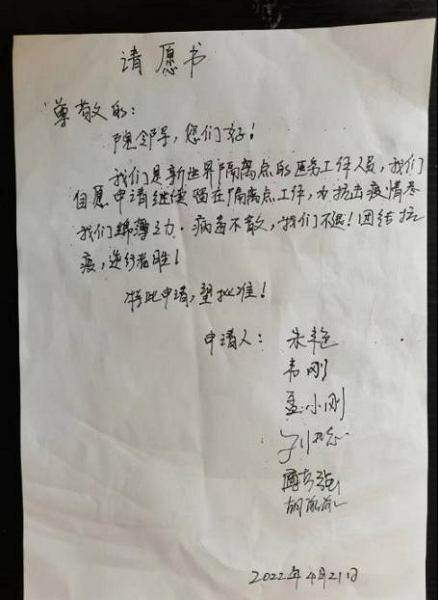 请愿书
尊敬的:
院领导,您们好!
我们是新世界隔离点的医务工作人员,我们
自愿申请继续留在隔离点工作,为抗击疫情尽
我们绵薄之力.病毒不散,我们不退!团结抗
疫,逆行者胜!
特此申请,望批准!
申请人: 朱艳
韦刚
孟小刚
2022年4月21日